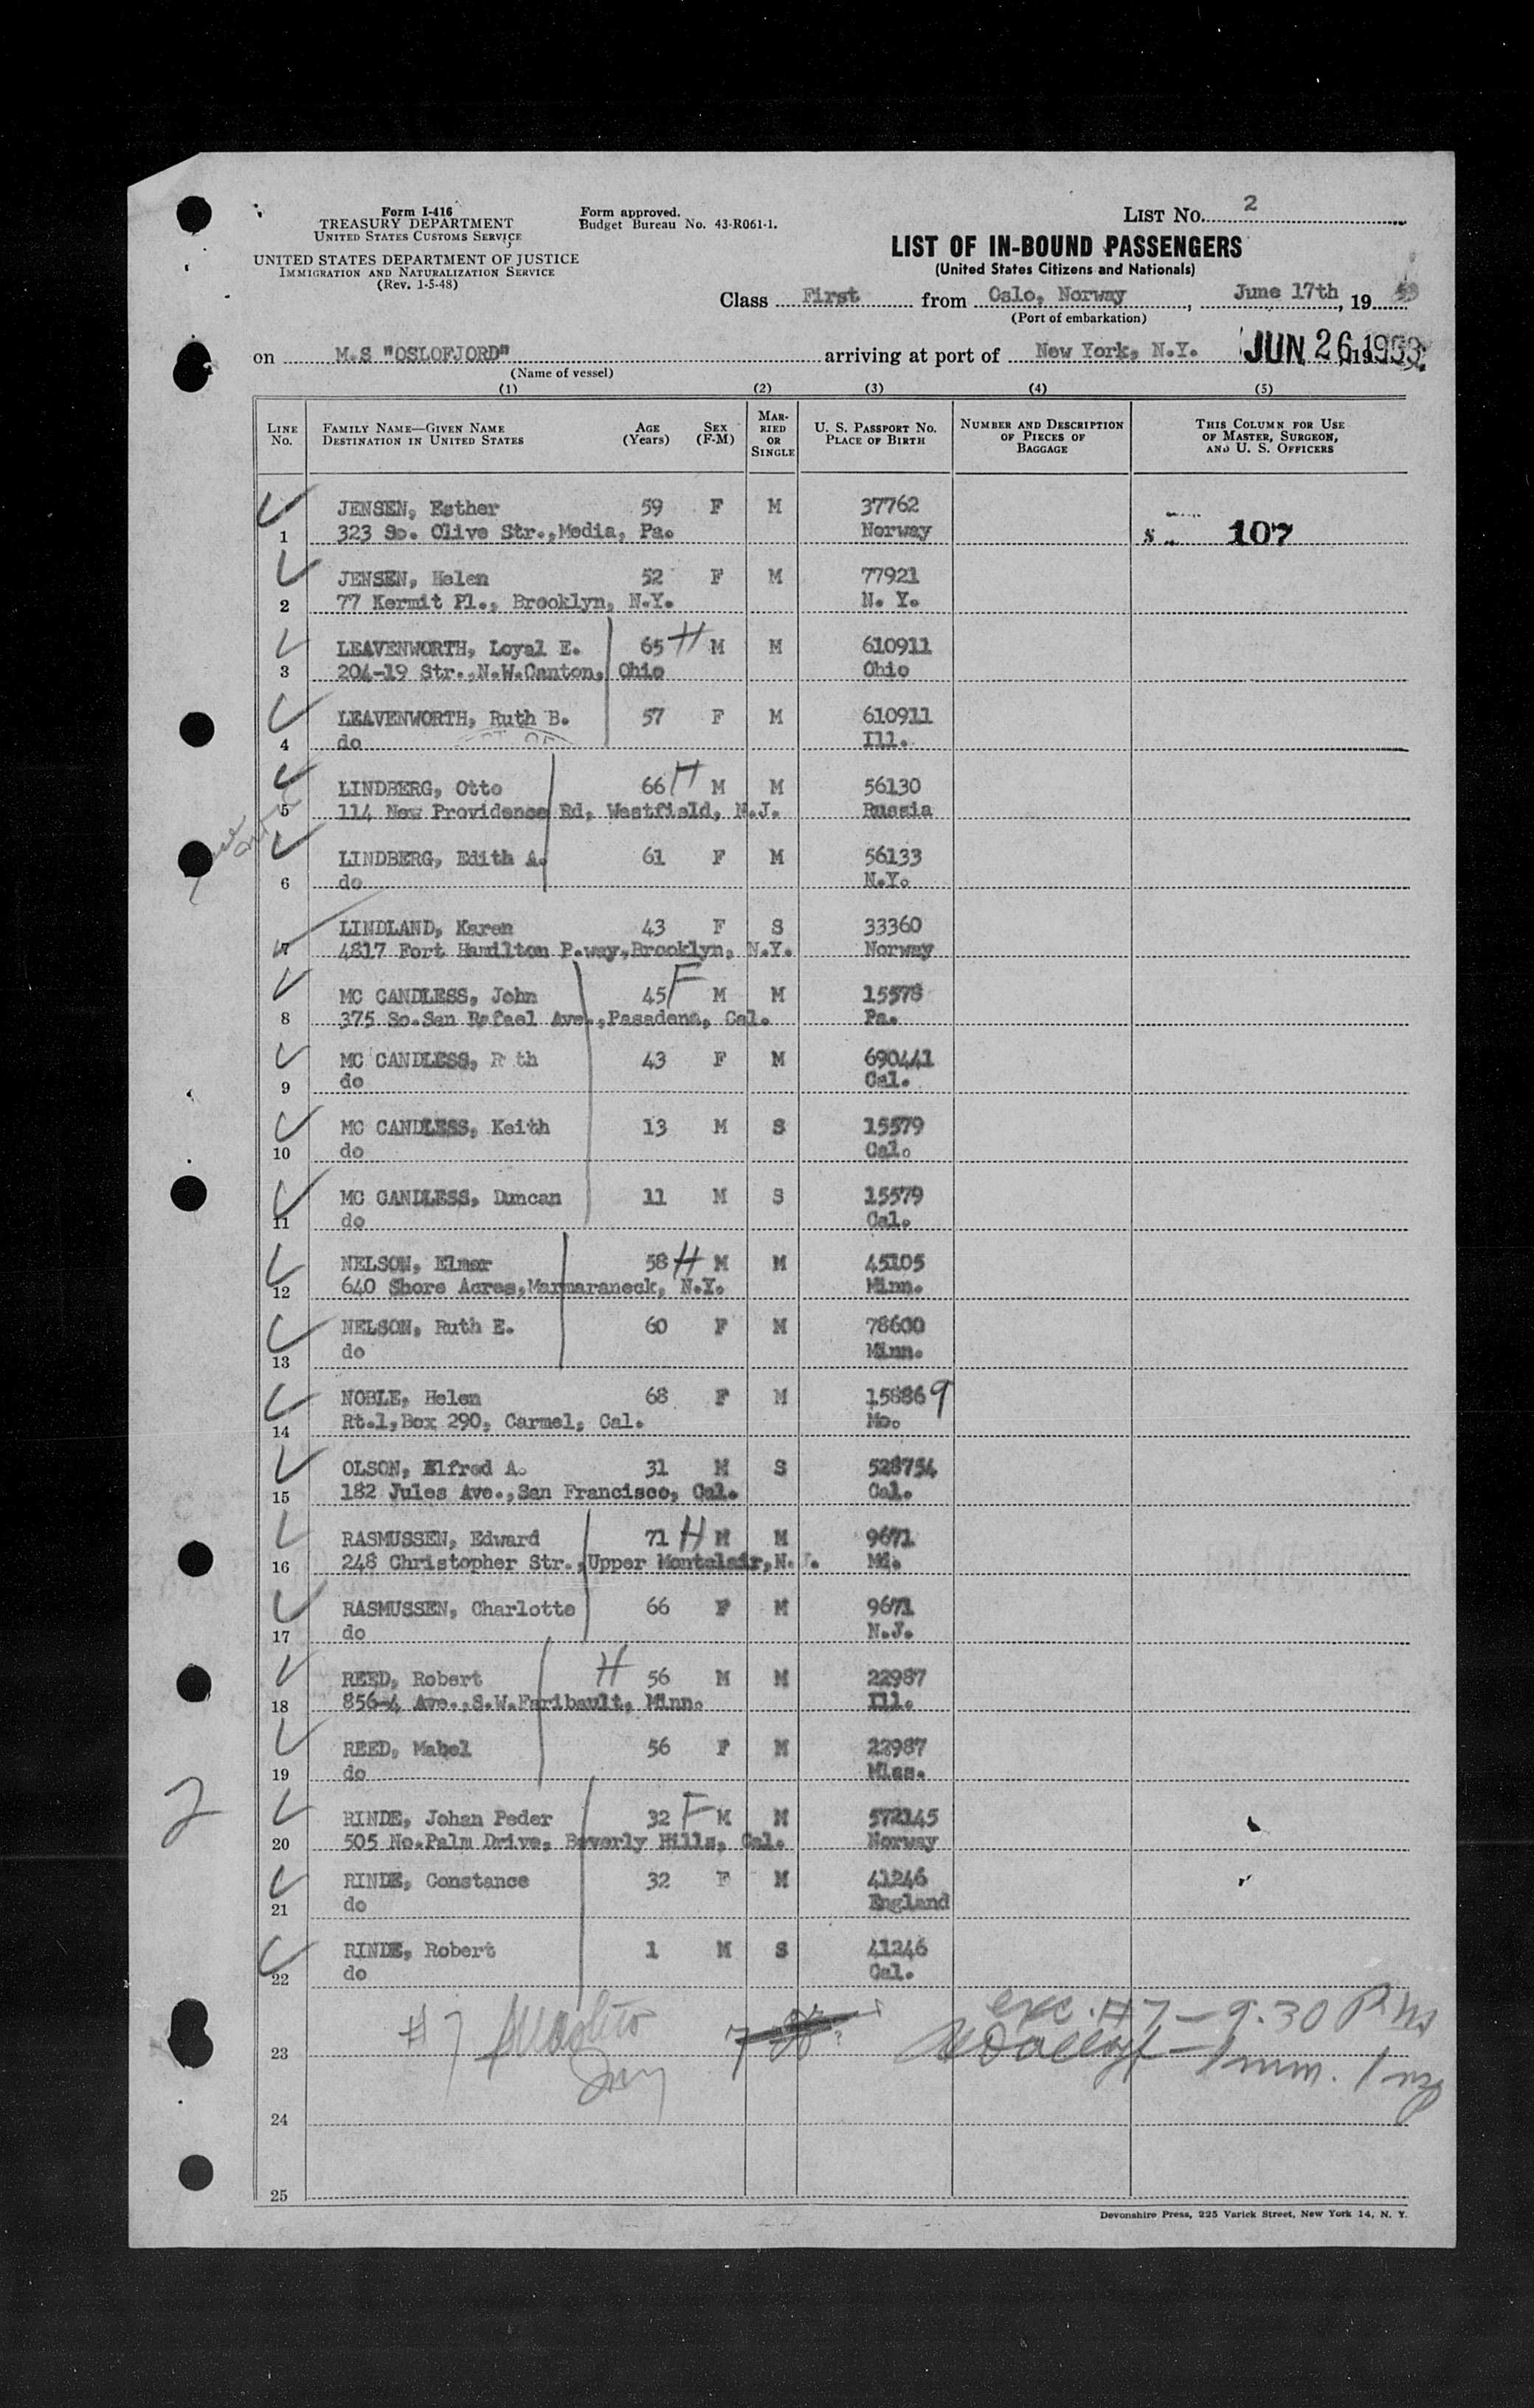 Form I-416
TREASURY DEPARTMENT
UNITED STATES CUSTOMS SERVICE
UNITED STATES DEPARTMENT OF JUSTICE
IMMIGRATION AND NATURALIZATION SERVICE
(Rev. 1-5-48)
Form approved.
Budget Bureau No. 43-R061-1.
LIST No. 2
LIST OF IN-BOUND PASSENGERS
(United States Citizens and Nationals)
Class First from Oslo, Norway, June 17th, 19 53
(Port of embarkation)
on M.S "OSLOFJORD" arriving at port of New York, N.Y. JUN 26 1953
(Name of vessel)
(1) (2) (3) (4) (5)
LINE No. FAMILY NAME—GIVEN NAME DESTINATION IN UNITED STATES AGE (Years) SEX (F-M) MARRIED OR SINGLE U. S. PASSPORT No. PLACE OF BIRTH NUMBER AND DESCRIPTION OF PIECES OF BAGGAGE THIS COLUMN FOR USE OF MASTER, SURGEON, AND U. S. OFFICERS
JENSEN, Esther 59 F M 37762
1 323 So. Olive Str.,Media, Pa. Norway 107
JENSEN, Helen 52 F M 77921
2 77 Kermit Pl., Brooklyn, N.Y. N. Y.
LEAVENWORTH, Loyal E. 65 H M M 610911
3 204-19 Str.,N.W.Canton, Ohio Ohio
LEAVENWORTH, Ruth B. 57 F M 610911
4 do Ill.
LINDBERG, Otto 66 H M M 56130
5 114 New Providence Rd, Westfield, N.J. Russia
LINDBERG, Edith A. 61 F M 56133
6 do N.Y.
LINDLAND, Karen 43 F S 33360
7 4817 Fort Hamilton P.way,Brooklyn, N.Y. Norway
MC CANDLESS, John 45 F M M 15578
8 375 So.San Rafael Ave.,Pasadena, Cal. Pa.
MC CANDLESS, R th 43 F M 690441
9 do Cal.
MC CANDLESS, Keith 13 M S 15579
10 do Cal.
MC CANDLESS, Duncan 11 M S 15579
11 do Cal.
NELSON, Elmer 58 H M M 45105
12 640 Shore Acres,Marmaraneck, N.Y. Minn.
NELSON, Ruth E. 60 F M 78600
13 do Minn.
NOBLE, Helen 68 F M 158869
14 Rt.1,Box 290, Carmel, Cal. Mo.
OLSON, Elfred A. 31 M S 528754
15 182 Jules Ave.,San Francisco, Cal. Cal.
RASMUSSEN, Edward 71 H M M 9671
16 248 Christopher Str.,Upper Montclair,N.J. Md.
RASMUSSEN, Charlotte 66 F M 9671
17 do N.J.
REED, Robert H 56 M M 22987
18 856-4 Ave.,S.W.Faribault, Minn. Ill.
REED, Mabel 56 F M 22987
19 do Miss.
2
RINDE, Johan Peder 32 F M M 572145
20 505 No.Palm Drive, Beverly Hills, Cal. Norway
RINDE, Constance 32 F M 41246
21 do England
RINDE, Robert 1 M S 41246
22 do Cal.
#7 exc. #7 - 9.30 P.M.
23
24
25
Devonshire Press, 225 Varick Street, New York 14, N. Y.